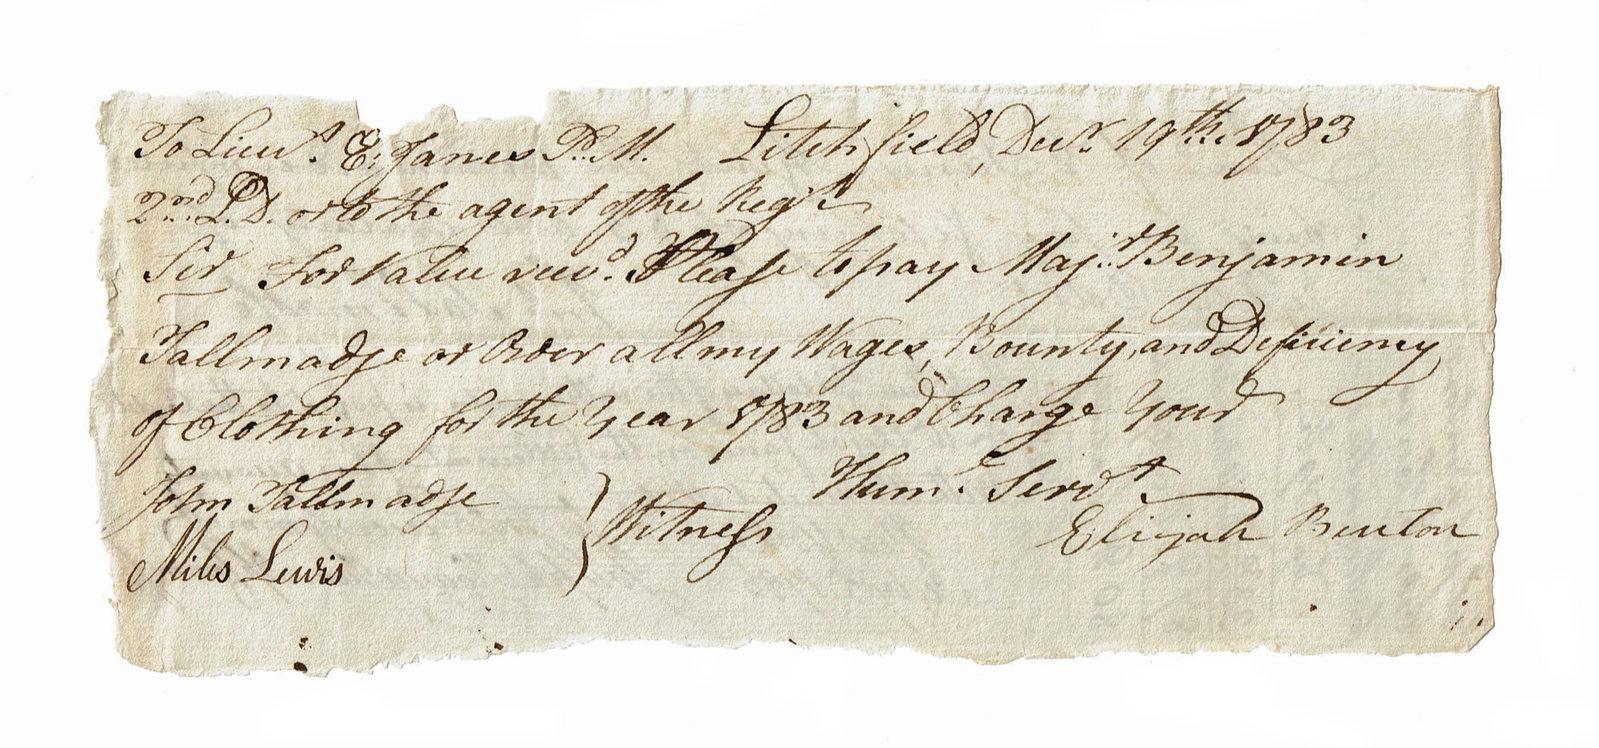 To Lieut. E. Janes P. M. Litchfield, Decr. 19th. 1783
2nd L. D. or to the agent of the Regt.
Sir For Value recvd. Please to pay Majr. Benjamin
Tallmadge or Order all my Wages, Bounty, and Deficiency
of Clothing for the Year 1783 and Charge Your
Humle. Servt.
John Tallmadge } Witness
Elijah Benton
Miles Lewis